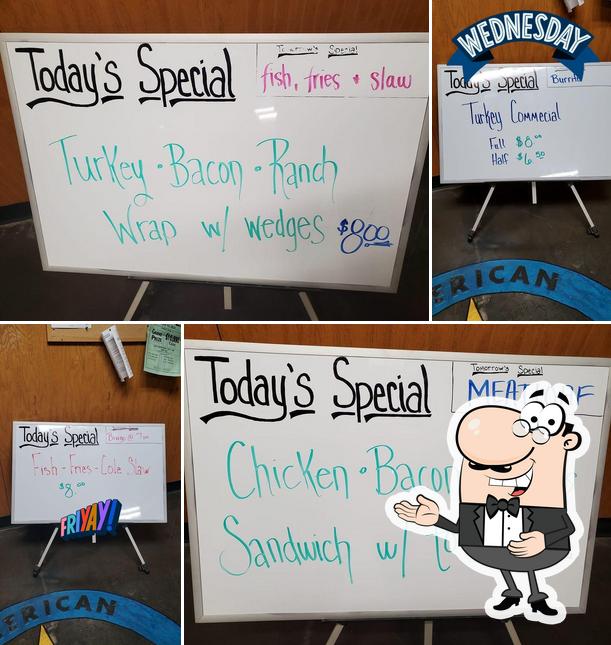 Today's Special
Tomorrow's Special
fish, fries + slaw
Turkey · Bacon · Ranch
Wrap w/ wedges $8.00
WEDNESDAY
Today's Special
Burrito
Turkey Commecial
Full $8.00
Half $6.50
ERICAN
Today's Special
Bingo @ 7pm
Fish - Fries - Cole Slaw
$8.00
FRIYAY!
ERICAN
Today's Special
Tomorrow's Special
Chicken · Bacon
Sandwich w/